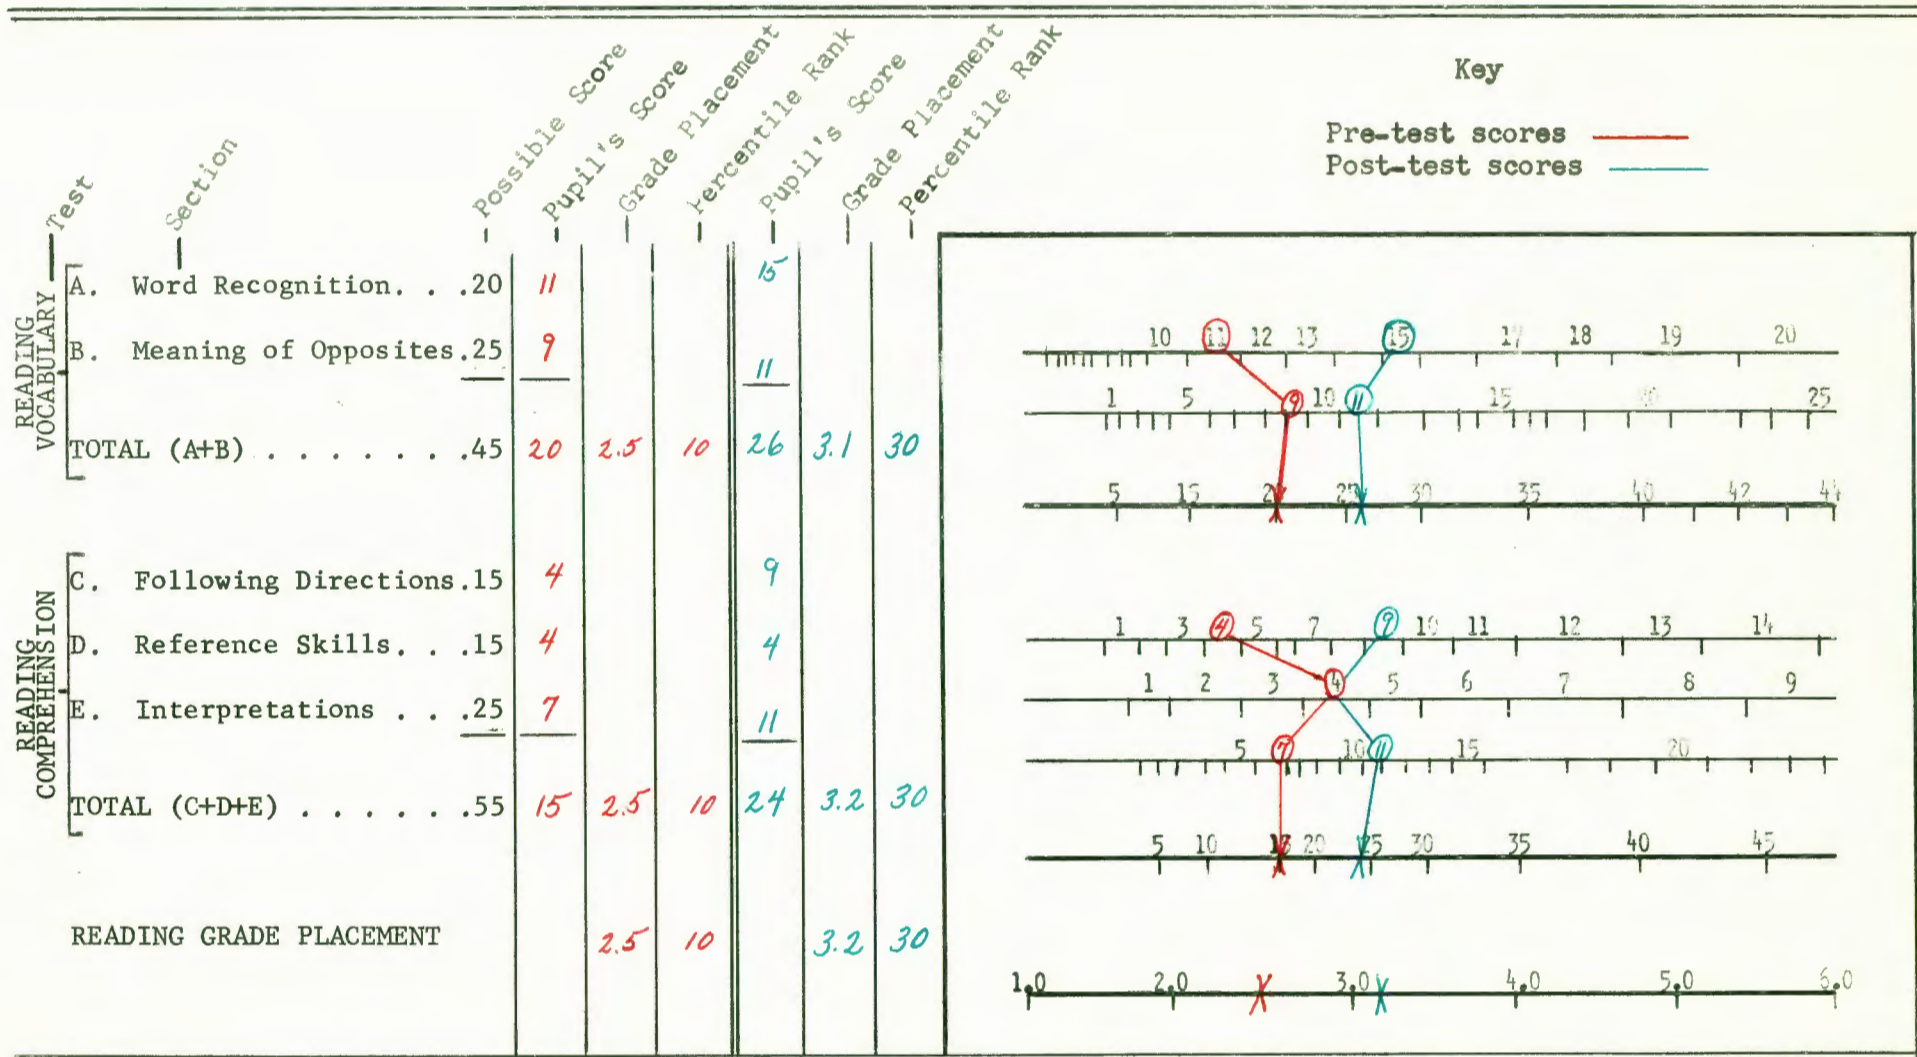 Key
Pre-test scores
Post-test scores
Test
Section
Possible Score
Pupil's Score
Grade Placement
Percentile Rank
Pupil's Score
Grade Placement
Percentile Rank
READING VOCABULARY
A. Word Recognition. . .20 11 15
B. Meaning of Opposites.25 9 11
TOTAL (A+B) . . . . . . .45 20 2.5 10 26 3.1 30
READING COMPREHENSION
C. Following Directions.15 4 9
D. Reference Skills. . .15 4 4
E. Interpretations . . .25 7 11
TOTAL (C+D+E) . . . . . .55 15 2.5 10 24 3.2 30
READING GRADE PLACEMENT 2.5 10 3.2 30
10 11 12 13 15 17 18 19 20
1 5 9 10 11 15 25
5 15 25 30 35 40 42 44
1 3 4 5 7 9 10 11 12 13 14
1 2 3 4 5 6 7 8 9
5 7 10 11 15 20
5 10 15 20 25 30 35 40 45
1.0 2.0 3.0 4.0 5.0 6.0